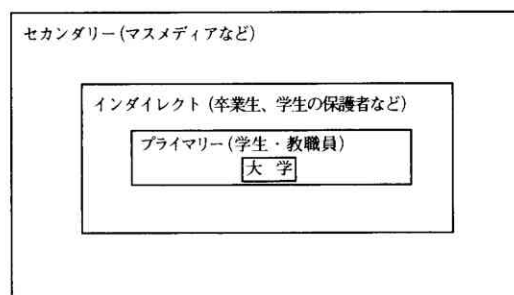 セカンダリー(マスメディアなど)
インダイレクト(卒業生、学生の保護者など)
プライマリー(学生・教職員)
大学